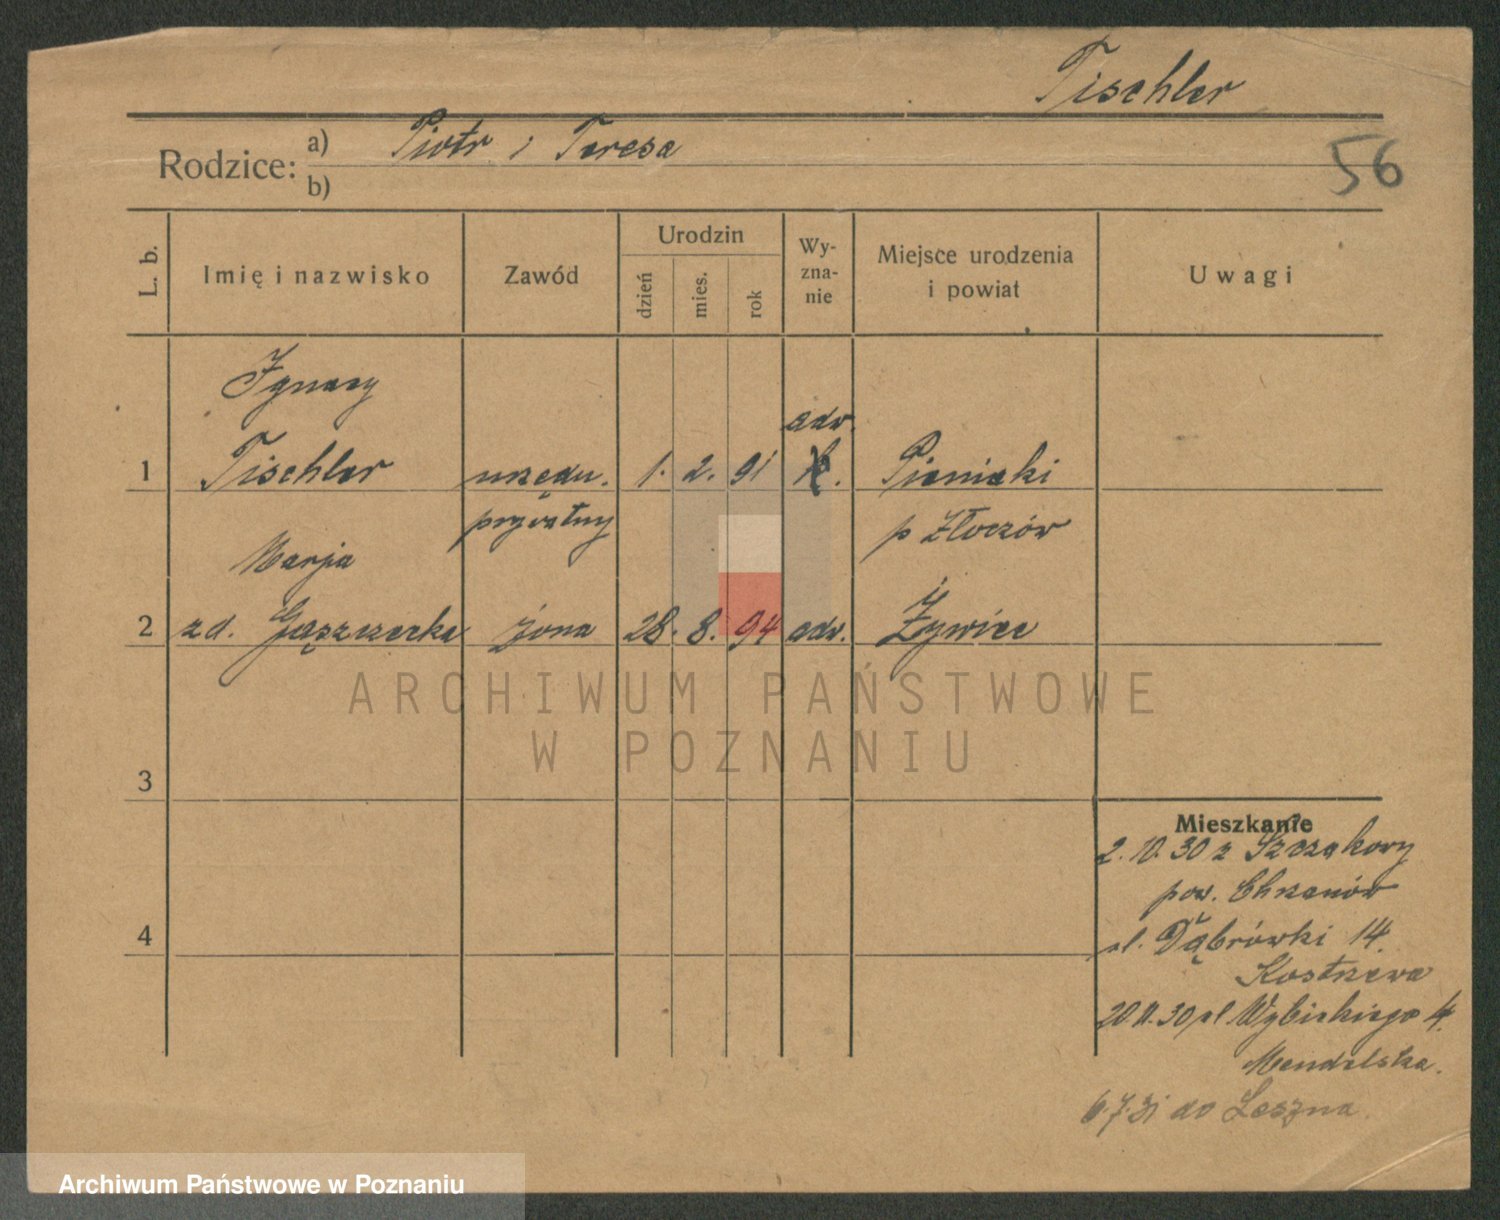 Tischler
Rodzice: a) Piotr i Teresa
b)
56
L. b.
Imię i nazwisko
Zawód
Urodzin
dzień
mies.
rok
Wy-
zna-
nie
Miejsce urodzenia
i powiat
Uwagi
Ignacy
adw.
1 Tischler urzędn. 1. 2. 91 Pieniaki
prywatny p Złoczów
Marja
2 zd. Gąszczecka żona 28. 8. 94 adw. Żywiec
3
4
Mieszkanie
2. 10. 30 z Szczakowy
pow. Chrzanów
ul. Dąbrówki 14
Kostrzewa
20 11. 30 ul. Wybickiego 4.
Mendelska.
6.7.31 do Leszna.
ARCHIWUM PAŃSTWOWE
W POZNANIU
Archiwum Państwowe w Poznaniu